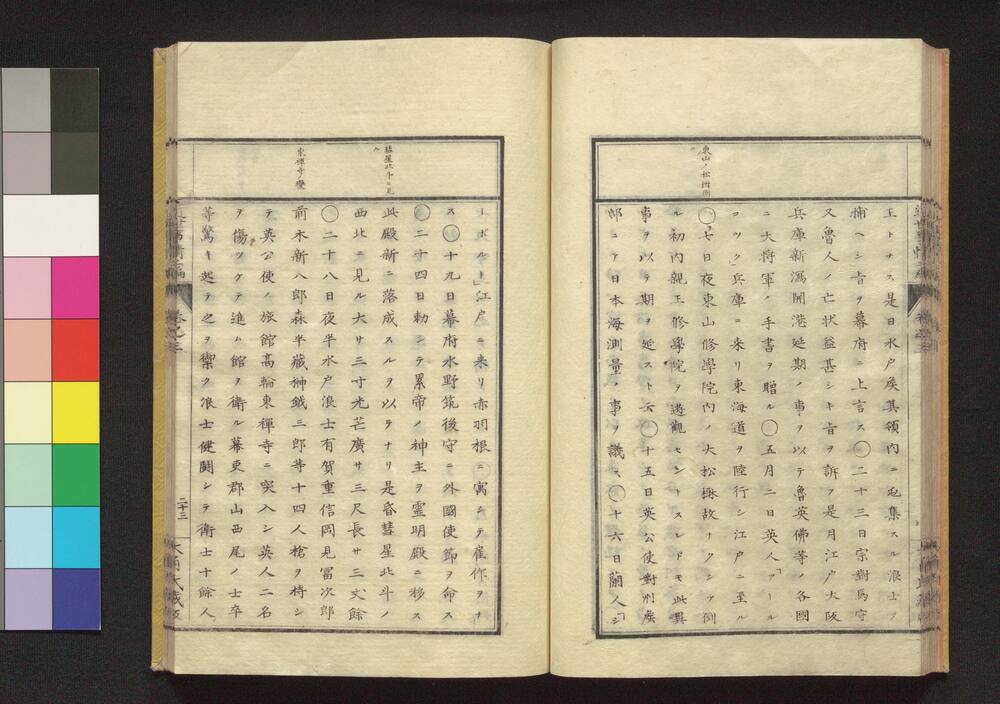 東山ノ松樹倒ル
王トナス是日水戸侯其領内ニ屯集スル浪士ヲ
捕ヘシ旨ヲ幕府ニ上言ス○二十三日宗對馬守
又魯人ノ亡状益甚シキ旨ヲ訴フ是月江戸大阪
兵庫新瀉開港延期ノ事ヲ以テ魯英佛等ノ各國
ニ大将軍ノ手書ヲ贈ル○五月二日英人「アール
コック」兵庫ニ来リ東海道ヲ陸行シ江戸ニ至ル
○七日夜東山修學院内ノ大松樹故ナクシテ倒
ル初内親王修學院ヲ遊觀セントスレドモ此異
事ヲ以テ期ヲ延スト云○十五日英公使對州侯
邸ニテ日本海測量ノ事ヲ議ス○十六日蘭人「シ
彗星北斗ニ見ル
東禅寺ノ變
ーボルト」江戸ニ来リ赤羽根ニ寓シテ雇作ヲナ
ス○十九日幕府水野筑後守ニ外國使節ヲ命ス
○二十四日勅シテ累帝ノ神主ヲ霊明殿ニ移ス
此殿新ニ落成スルヲ以テナリ是昏彗星北斗ノ
西北ニ見ル大サ三寸光芒廣サ三尺長サ三丈餘
○二十八日夜半水戸浪士有賀重信岡見冨次郎
前木新八郎森半藏榊鉞三郎等十四人槍ヲ持シ
テ英公使ノ旅館高輪東禅寺ニ突入シ英人二名
ヲ傷ツケテ進ム館ヲ衛ル幕吏郡山西尾ノ士卒
等驚キ起テ之ヲ禦ク浪士健闘シテ衛士十餘人
卷之三
二十三